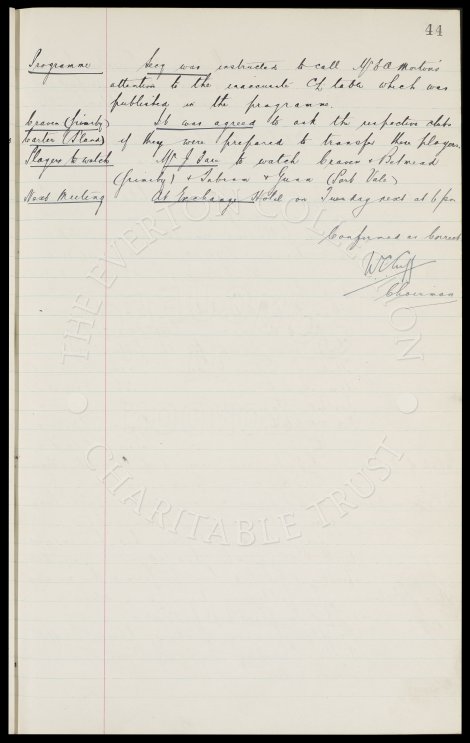 44
Programme Secy was instructed to call Mr E A Morton's
attention to the inaccurate C.L. table which was
published in the programme.
Craven (Grimsby) It was agreed to ask the respective clubs
Carter (S'land) if they were prepared to transfer these players.
Players to watch Mr J to watch Craven & Betmead
(Grimsby) & & Gunn (Port Vale)
Next Meeting At Exchange Hotel on Tuesday next at 6 pm
Confirmed as Correct
W C Cuff
Chairman
THE EVERTON COLLECTION
CHARITABLE TRUST